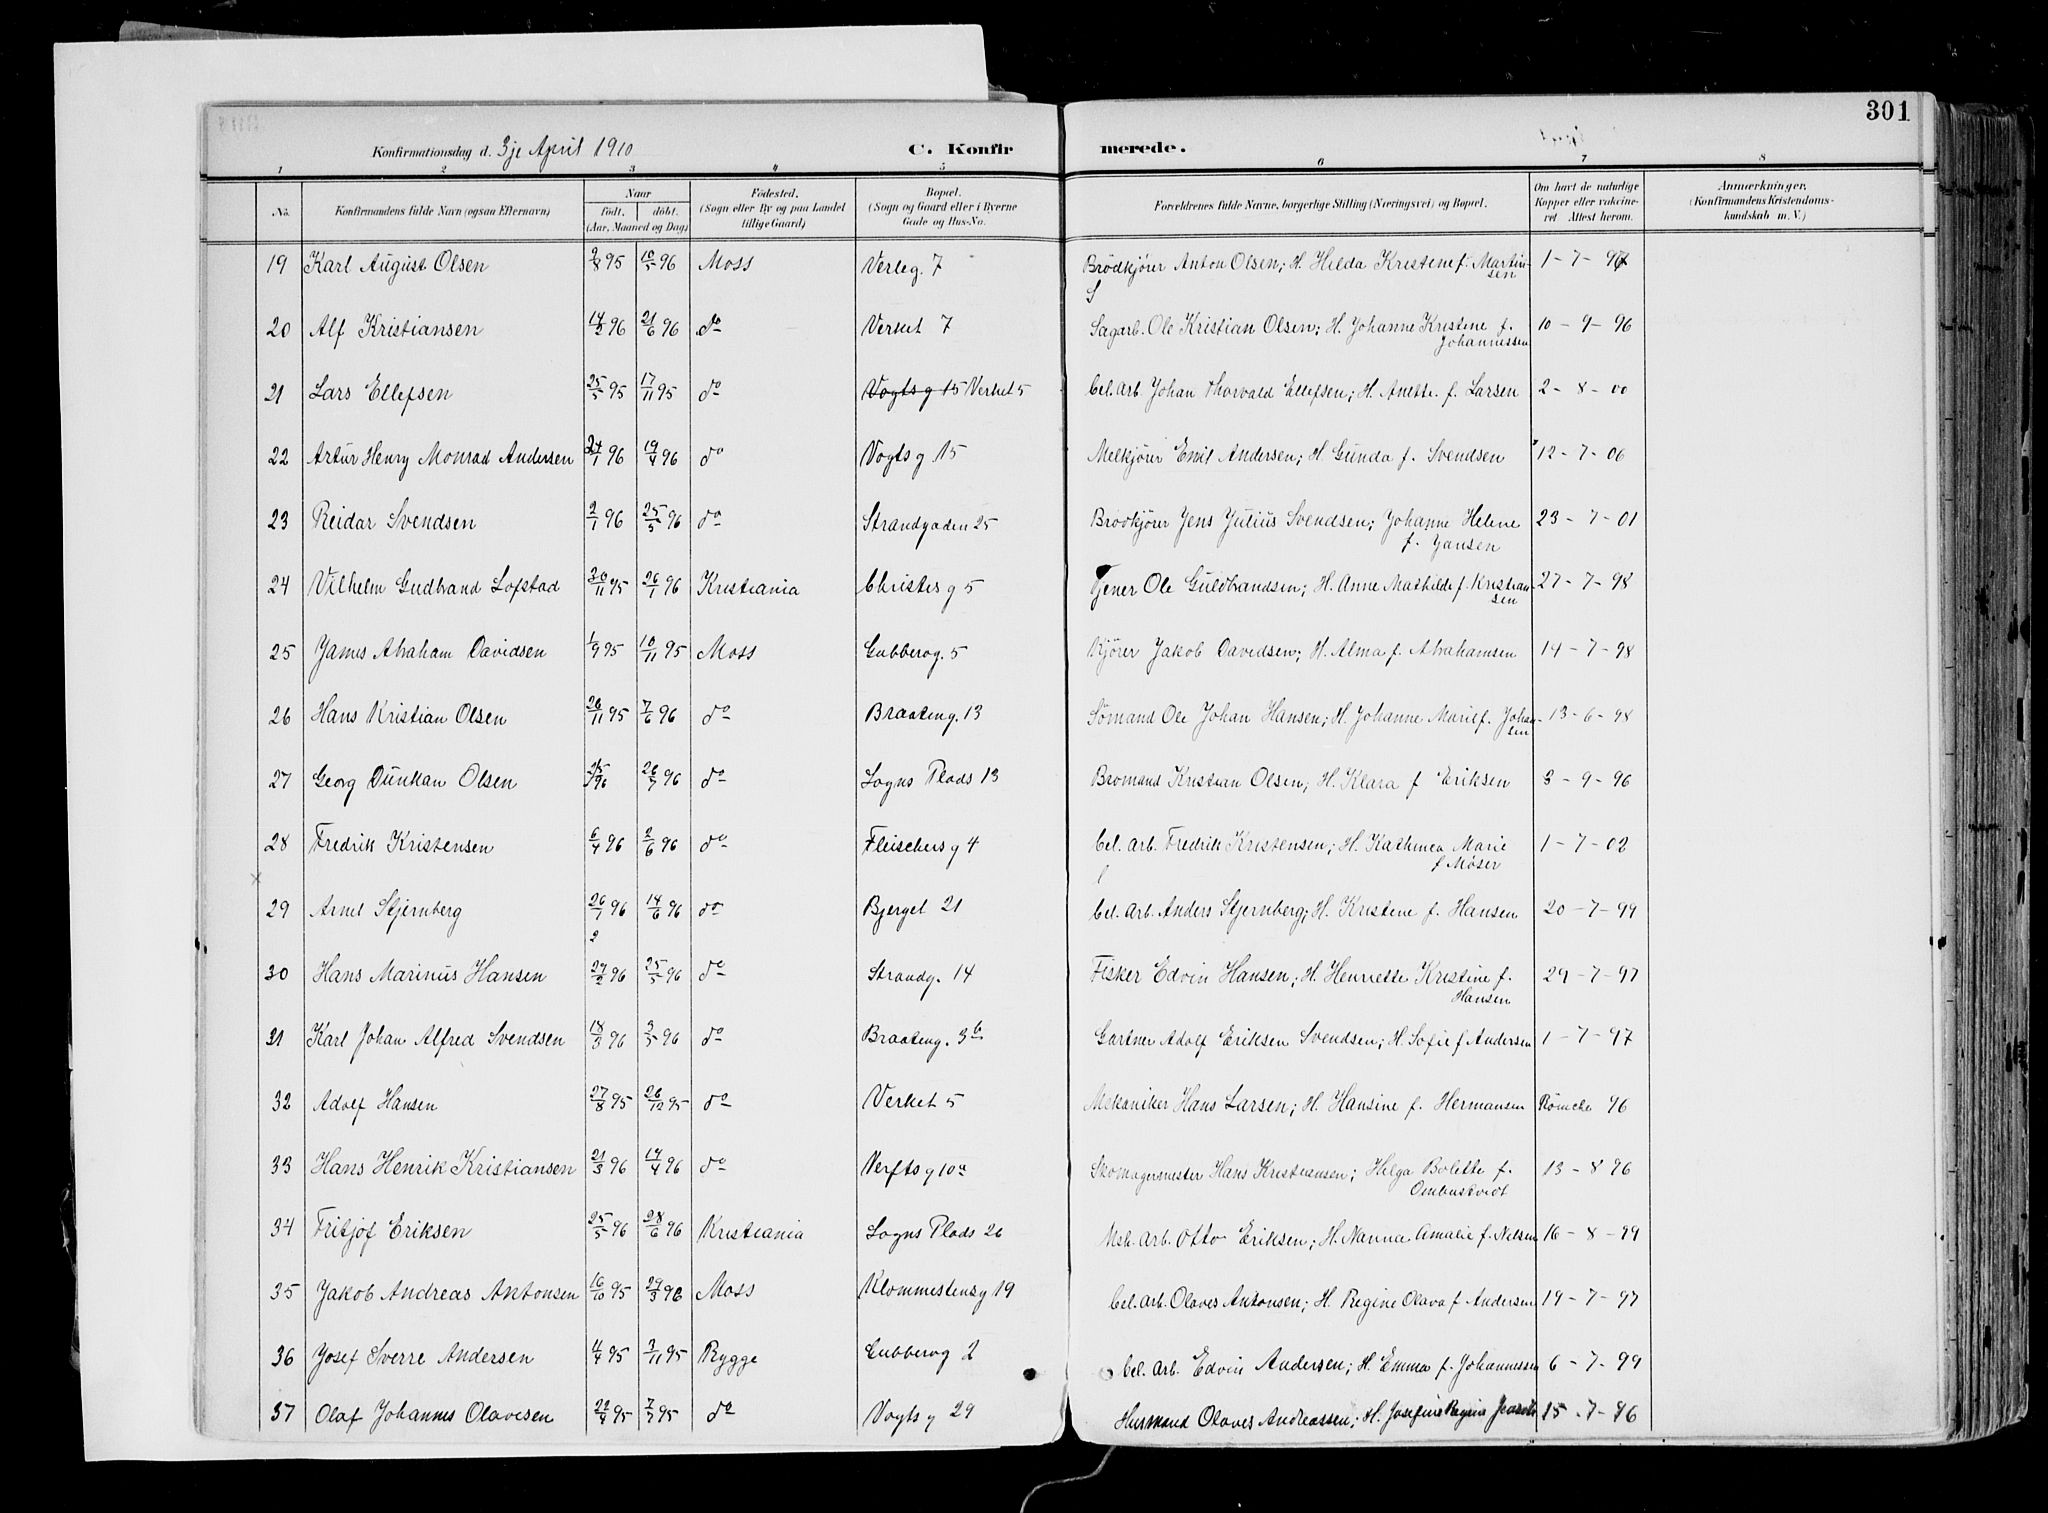 301
Konfirmationsdag d. 3je April 1910 C. Konfirmerede.
1 2 3 4 5 6 7 8
No. Konfirmandens fulde Navn (ogsaa Efternavn) Naar født. døbt. (Aar, Maaned og Dag) Fødested. (Sogn eller By og paa Landet tillige Gaard) Bopæl. (Sogn og Gaard eller i Byerne Gade og Hus-No. Forældrenes fulde Navne, borgerlige Stilling (Næringsvei) og Bopæl. Om havt de naturlige Kopper eller vakcineret Attest herom. Anmærkninger. (Konfirmandens Kristendomskundskab m. V.)
19 Karl August Olsen 2/8 95 10/5 96 Moss Verleg. 7 Brødkjører Anton Olsen; H. Hilda Kristene f. Martinsen 1-7-97
20 Alf Kristiansen 14/2 96 21/6 96 do Verket 7 Sagarb. Ole Kristian Olsen; H. Johanne Kristine f. Johannessen 10-9-96
21 Lars Ellefsen 25/5 95 17/11 95 do Vogts g 15 Verket 5 Cel. arb. Johan Thorvald Ellefsen; H. Anette f. Larsen 2-8-00
22 Artur Henry Monrad Andersen 24/1 96 19/4 96 do Vogts g. 15 Melkjører Emil Andersen; H. Gunda f. Svendsen 12-7-06
23 Reidar Svendsen 2/1 96 25/5 96 do Strandgaden 25 Brødkjører Jens Julius Svendsen; Johanne Helene f. Jansen 23-7-01
24 Vilhelm Gudbrand Lofstad 30/11 95 26/1 96 Kristiania Christies g 5 Tjener Ole Guldbrandsen; H. Anne Mathilde f. Kristiansen 27-7-98
25 James Abraham Davidsen 1/9 95 10/11 95 Moss Gubberog. 5 Kjører Jakob Davidsen; H. Alma f. Abrahamsen 14-7-98
26 Hans Kristian Olsen 26/11 95 7/6 96 do Braateng. 13 Sømand Ole Johan Hansen; H. Johanne Marie f. Johansen 13-6-98
27 Georg Dunkan Olsen 96 26/7 96 do Sogns Plads 13 Bromand Kristian Olsen; H. Klara f Eriksen 3-9-96
28 Fredrik Kristensen 6/4 96 2/6 96 do Fleischers g 4 Cel. arb. Fredrik Kristensen; H. Kathinca Marie f Møser 1-7-02
29 Arnt Stjernberg 26/1 96 14/6 96 do Bjerget 21 Cel. arb. Anders Stjernberg; H. Kristene f. Hansen 20-7-99
30 Hans Marinus Hansen 27/2 96 25/5 96 do Strandg. 14 Fisker Edvin Hansen; H. Henriette Kristine f. Hansen 29-7-97
31 Karl Johan Alfred Svendsen 18/3 96 3/5 96 do Braateng. 3b Gartner Adolf Eriksen Svendsen; H. Sofie f Andersen 1-7-97
32 Adolf Hansen 27/8 95 26/12 95 do Verket 5 Mekaniker Hans Larsen; H. Hansine f. Hermansen Rømcke 96
33 Hans Henrik Kristiansen 21/3 96 19/4 96 do Verfts g 10a Skomagermester Hans Kristiansen; Helga Bolette f. Ombustvedt 13-8 96
34 Fritjof Eriksen 25/5 96 28/6 96 Kristiania Sogns Plads 26 Mek. Arb. Otto Eriksen; H. Nanna Amalie f. Nilsen 16-8-99
35 Jakob Andreas Antonsen 16/10 95 29/3 96 Moss Klommestensg 19 Cel. arb. Olaves Antonsen; H. Regine Olava f. Andersen 19-7-97
36 Josef Sverre Andersen 11/4 95 3/11 95 Rygge Gubberog 2 Cel. arb. Edvin Andersen; H. Emma f. Johannessen 6-7-99
37 Olaf Johannes Olavesen 22/4 95 7/7 95 do Vogts g 29 Husmand Olaves Andreassen; H. Josefine Regine 15-7-96